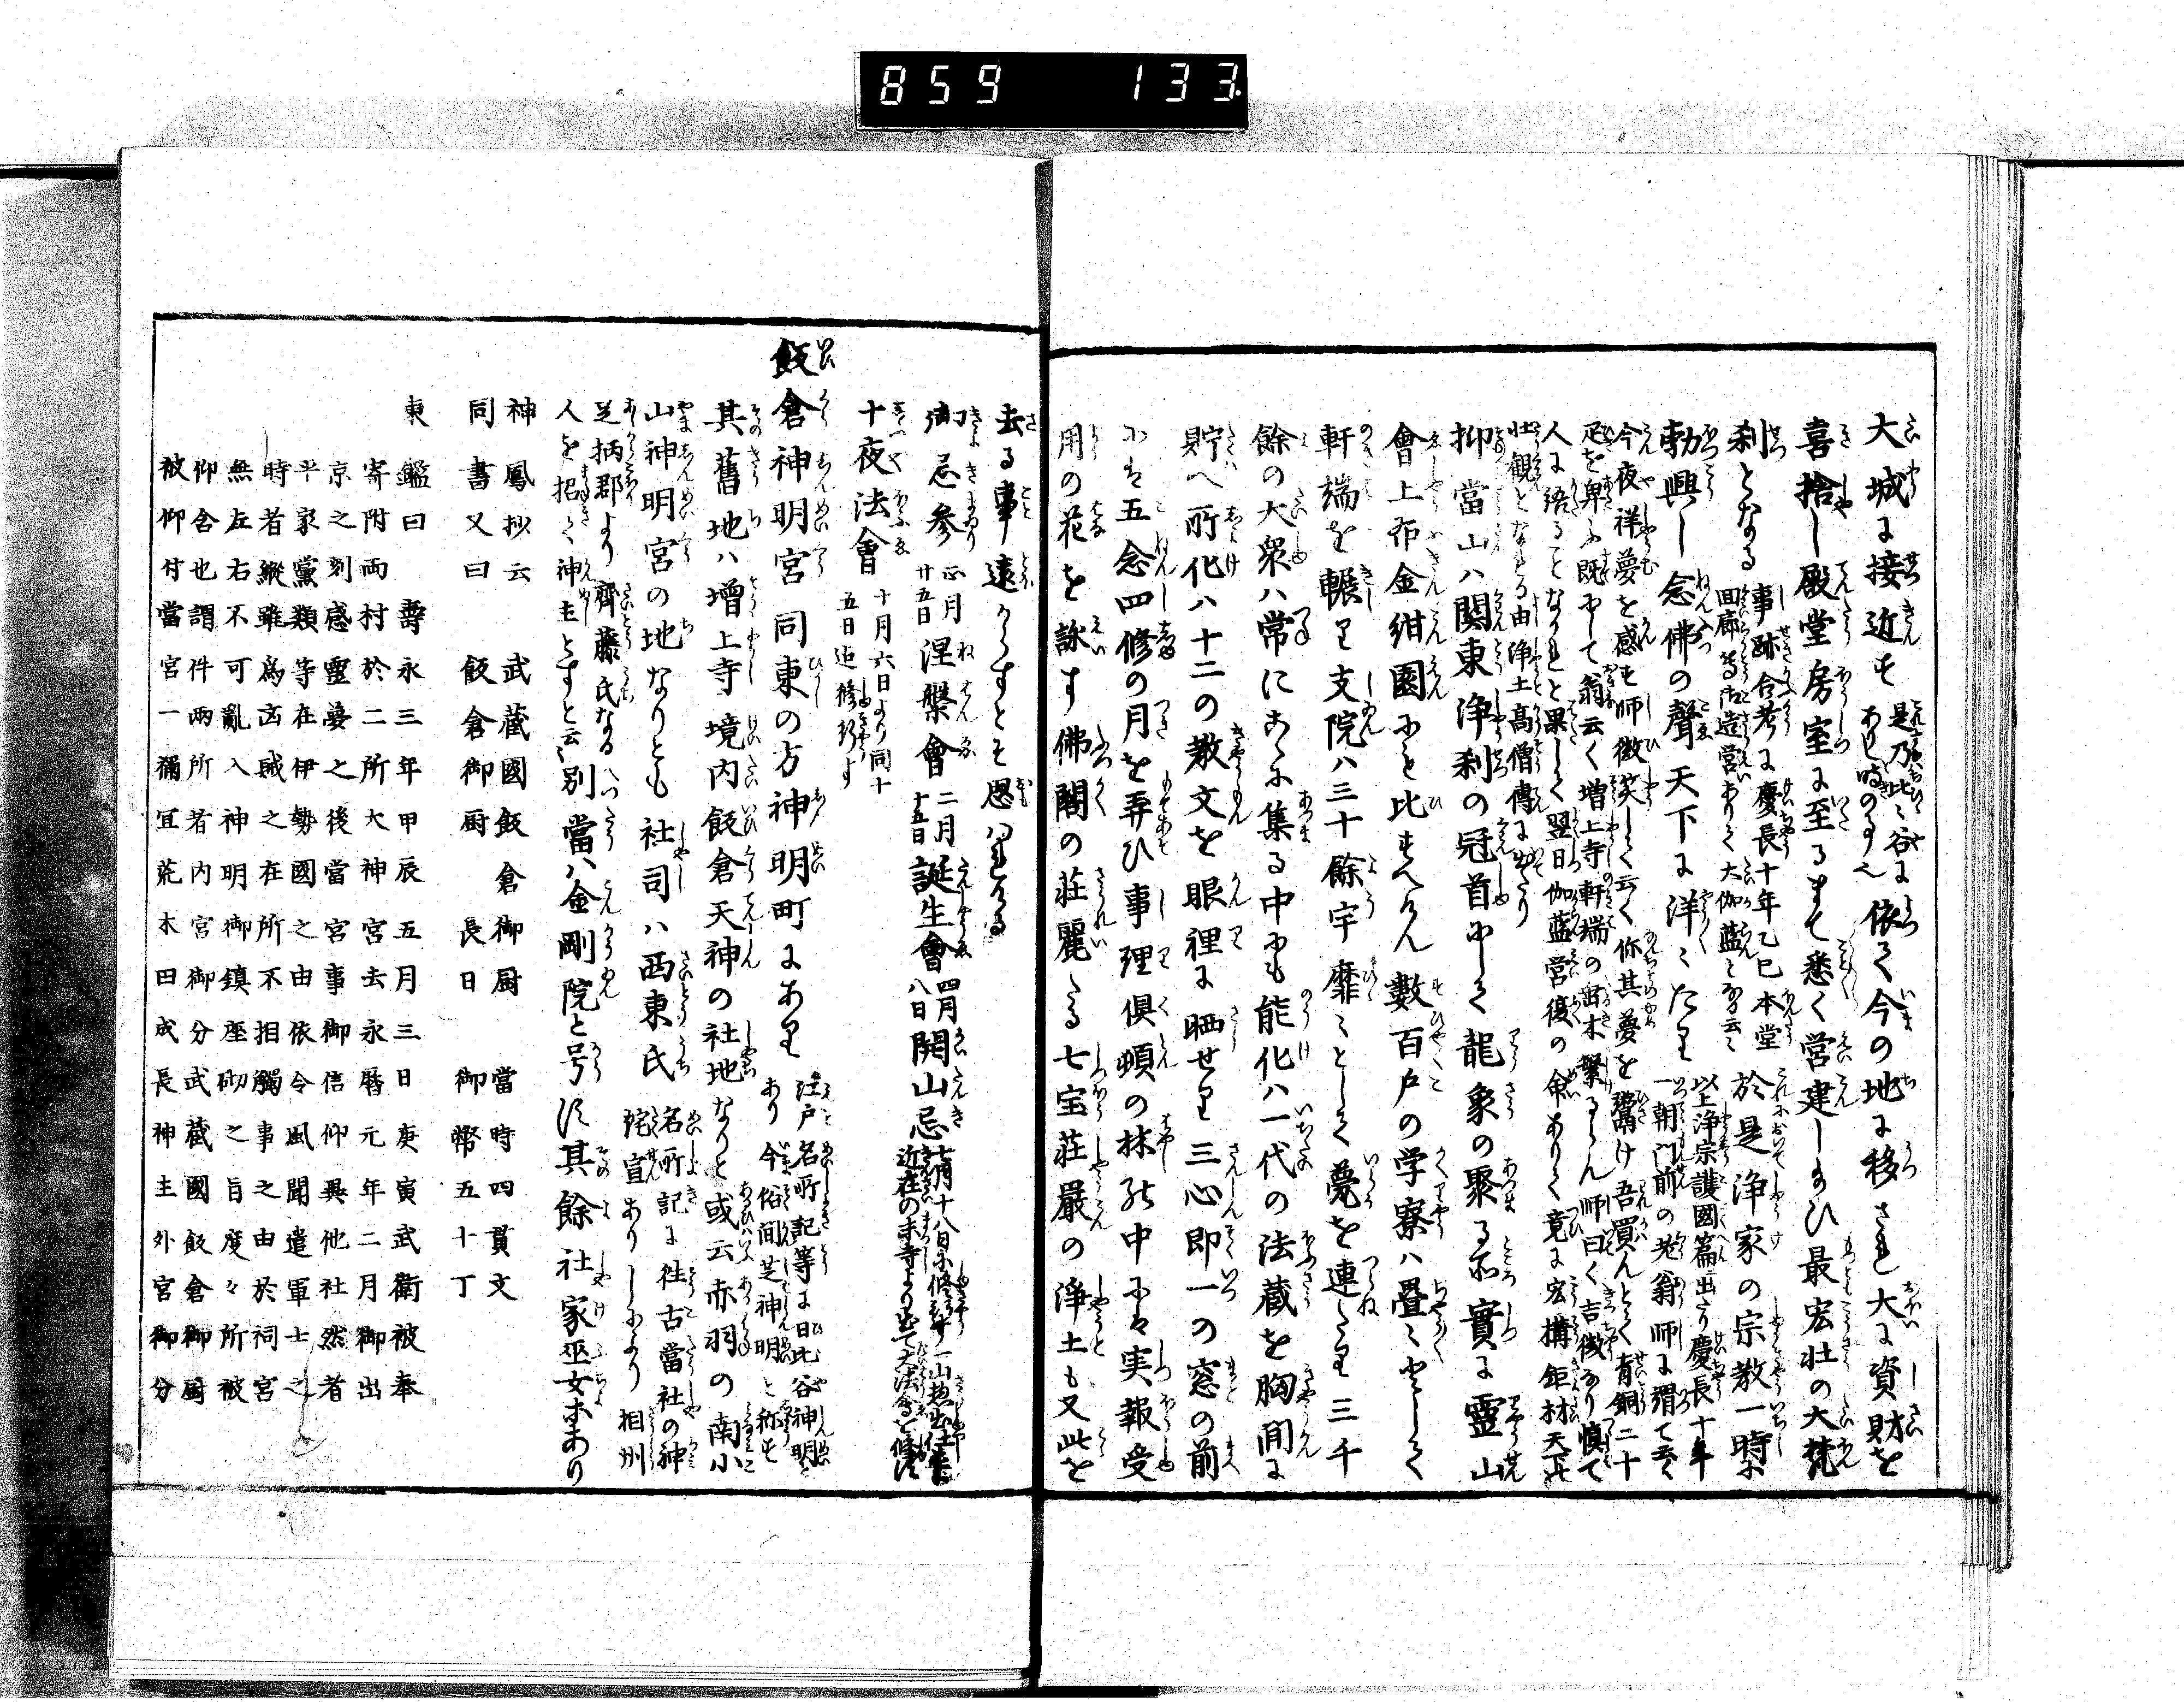 859 133.
大城に接近す是乃日比谷にありし時の事也依て今の地に移され大に資財を
喜捨し殿堂房室に至るまで悉く営建し給ひ最宏壮の大梵
刹となる事跡合考に慶長十年乙巳本堂回廊等御造営ありて大伽藍となる云々於是浄家の宗教一時に
勃興し念佛の聲天下に洋々たり以上浄宗護國篇に出たり慶長十年一朝門前の老翁師に謂て云く
今夜祥夢を感す師微笑して云く你其夢を鬻け吾買んとて青銅二十
疋を卑ふ既にして翁云く増上寺軒端の苗木繁るらん師曰く吉徴なり慎て
人に語ることなかれと果して翌日伽藍営復の命ありて竟に宏搆鉅材天下の
壮観となれる由浄土高僧傳に出たり
抑當山ハ関東浄刹の冠首にして龍象の聚る所實に霊山
會上布金紺園にも比すへけん數百戸の学寮ハ畳々として
軒端を輾り支院ハ三十餘宇靡々として甍を連たり三千
餘の大衆ハ常にこゝに集る中にも能化ハ一代の法蔵を胸間に
貯へ所化ハ十二の教文を眼裡に晒せり三心即一の窓の前
にハ五念四修の月を弄ひ事理倶頓の林の中にハ実報受
用の花を詠す佛閣の荘麗たる七宝荘嚴の浄土も又此を
去る事遠からすとそ思はれける
御忌参正月廿五日涅槃會二月十五日誕生會四月八日開山忌七月十八日に修行す一山惣出仕
近在の末寺より出て大法會を修す
十夜法會十月六日より同十五日迄修行す
飯倉神明宮同東の方神明町にあり江戸名所記等に日比谷神明と
あり今俗間芝神明と称す
其舊地ハ増上寺境内飯倉天神の社地なりと或云赤羽の南小
山神明宮の地なりとも社司ハ西東氏名所記に往古當社の神
詫宣ありしにより相州
足柄郡より齊藤氏なる
人を招て神主とすと云云別當ハ金剛院と号す其餘社家巫女等あり
神鳳抄云武蔵國飯倉御厨當時四貫文
同書又曰飯倉御厨長日御幣五十丁
東鑑曰壽永三年甲辰五月三日庚寅武衛被奉
寄附兩村於二所大神宮去永暦元年二月御出
京之刻感靈夢之後當宮事御信仰異他社然者
平家黨類等在伊勢國之由依令風聞遣軍士之
時者縱雖爲凶賊之在所不相觸事之由於祠官
無左右不可亂入神明御鎮座砌之旨度々所被
仰含也謂件兩所者内宮御分武蔵國飯倉御厨
被仰付當宮一禰宜荒木田成長神主外宮御分